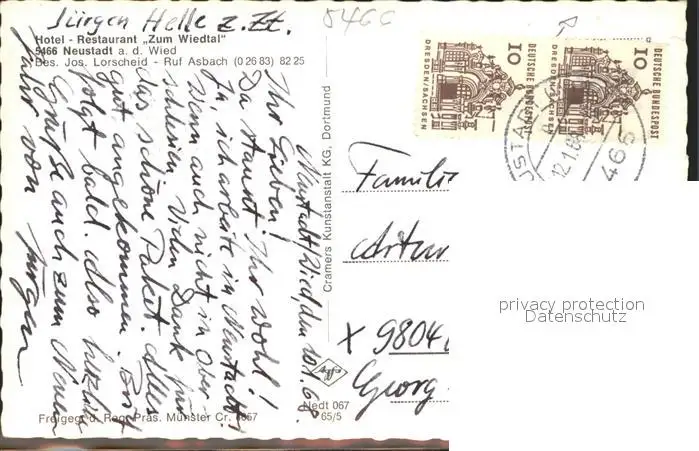 Jürgen Helle z. Zt.
5466
Hotel - Restaurant „Zum Wiedtal"
5466 Neustadt a. d. Wied
Bes. Jos. Lorscheid - Ruf Asbach (0 26 83) 82 25
Neustadt/Wied, den 10.1.68
Ihr Lieben!
Da staunt Ihr wohl!
Ja ich arbeite in Neustadt,
wenn auch nicht in Ober-
schlesien. Vielen Dank für
das schöne Paket. Alles
gut angekommen. Brief
folgt bald. Also herzliche
Grüße auch zum Neuen
Jahr von Jürgen
Cramers Kunstanstalt KG, Dortmund
Agfa
Nedt 067
65/5
Freigeg. d. Reg. Präs. Münster Cr. 6067
10 DEUTSCHE BUNDESPOST
DRESDEN/SACHSEN
10 DEUTSCHE BUNDESPOST
DRESDEN/SACHSEN
12.1.68
5466
Familie
Artur
X 9804
Georg
privacy protection
Datenschutz